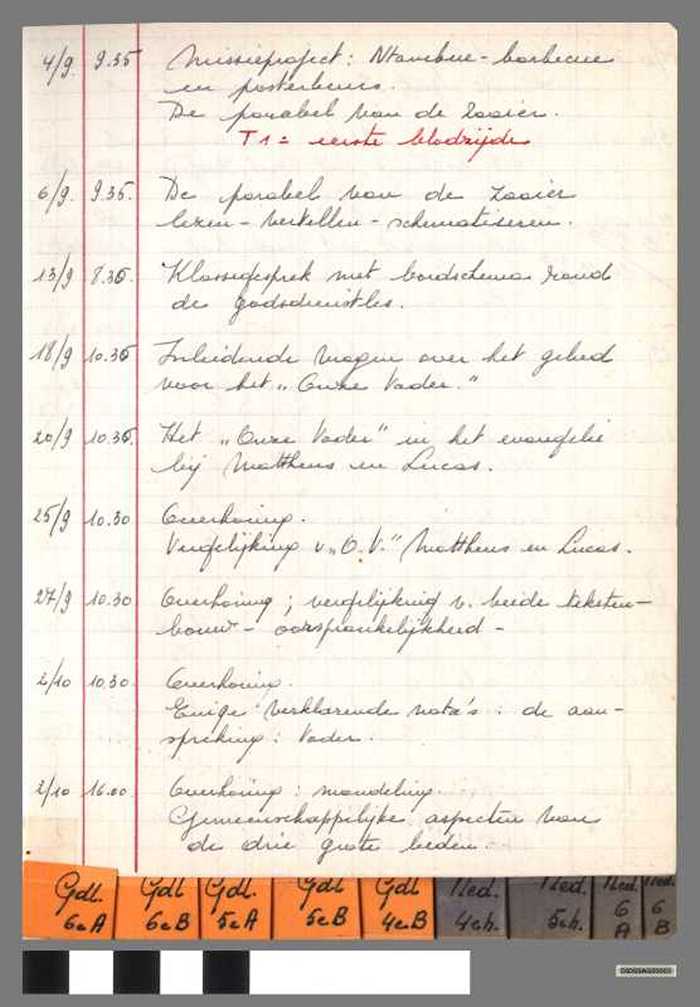 4/9 9.35 Missieproject: Ntambue - barbecue
en posterbeurs.
De parabel van de zaaier.
T1 = eerste bladzijde
6/9. 9.35. De parabel van de zaaier
lezen - vertellen - schematiseren.
13/9 8.35. Klassegesprek met bordschema rond
de godsdienstles.
18/9 10.35 Inleidende vragen over het gebed
voor het „Onze Vader."
20/9 10.35. Het „Onze Vader" in het evangelie
bij Mattheus en Lucas.
25/9 10.30 Overhoring.
Vergelijking v. „O.V." Mattheus en Lucas.
27/9 10.30 Overhoring; vergelijking v. beide teksten -
bouw - oorspronkelijkheid -
2/10 10.30 Overhoring.
Enige verklarende nota's: de aan-
spreking: Vader.
2/10 16.00 Overhoring: mondeling.
Gemeenschappelijke aspecten van
de drie grote beden.
Gdl. Gdl Gdl. Gdl Gdl Ned. Ned. Ned. Ned.
6eA 6eB 5eA 5eB 4eB 4eh. 5eh. 6 A 6 B